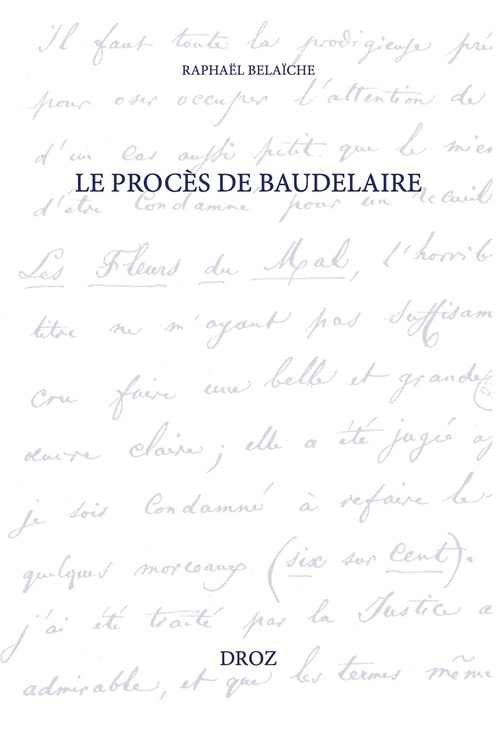 Il faut toute la prodigieuse pré
RAPHAËL BELAÏCHE
pour oser occuper l'attention de
d'un cas aussi petit que le mien
LE PROCÈS DE BAUDELAIRE
d'être condamné pour un recueil
Les Fleurs du Mal, l'horrib
titre ne m'ayant pas suffisam
cru faire une belle et grande
œuvre claire ; elle a été jugée
je suis condamné à refaire le
quelques morceaux (six sur cent).
j'ai été traité par la Justice a
DROZ
admirable, et que les termes même